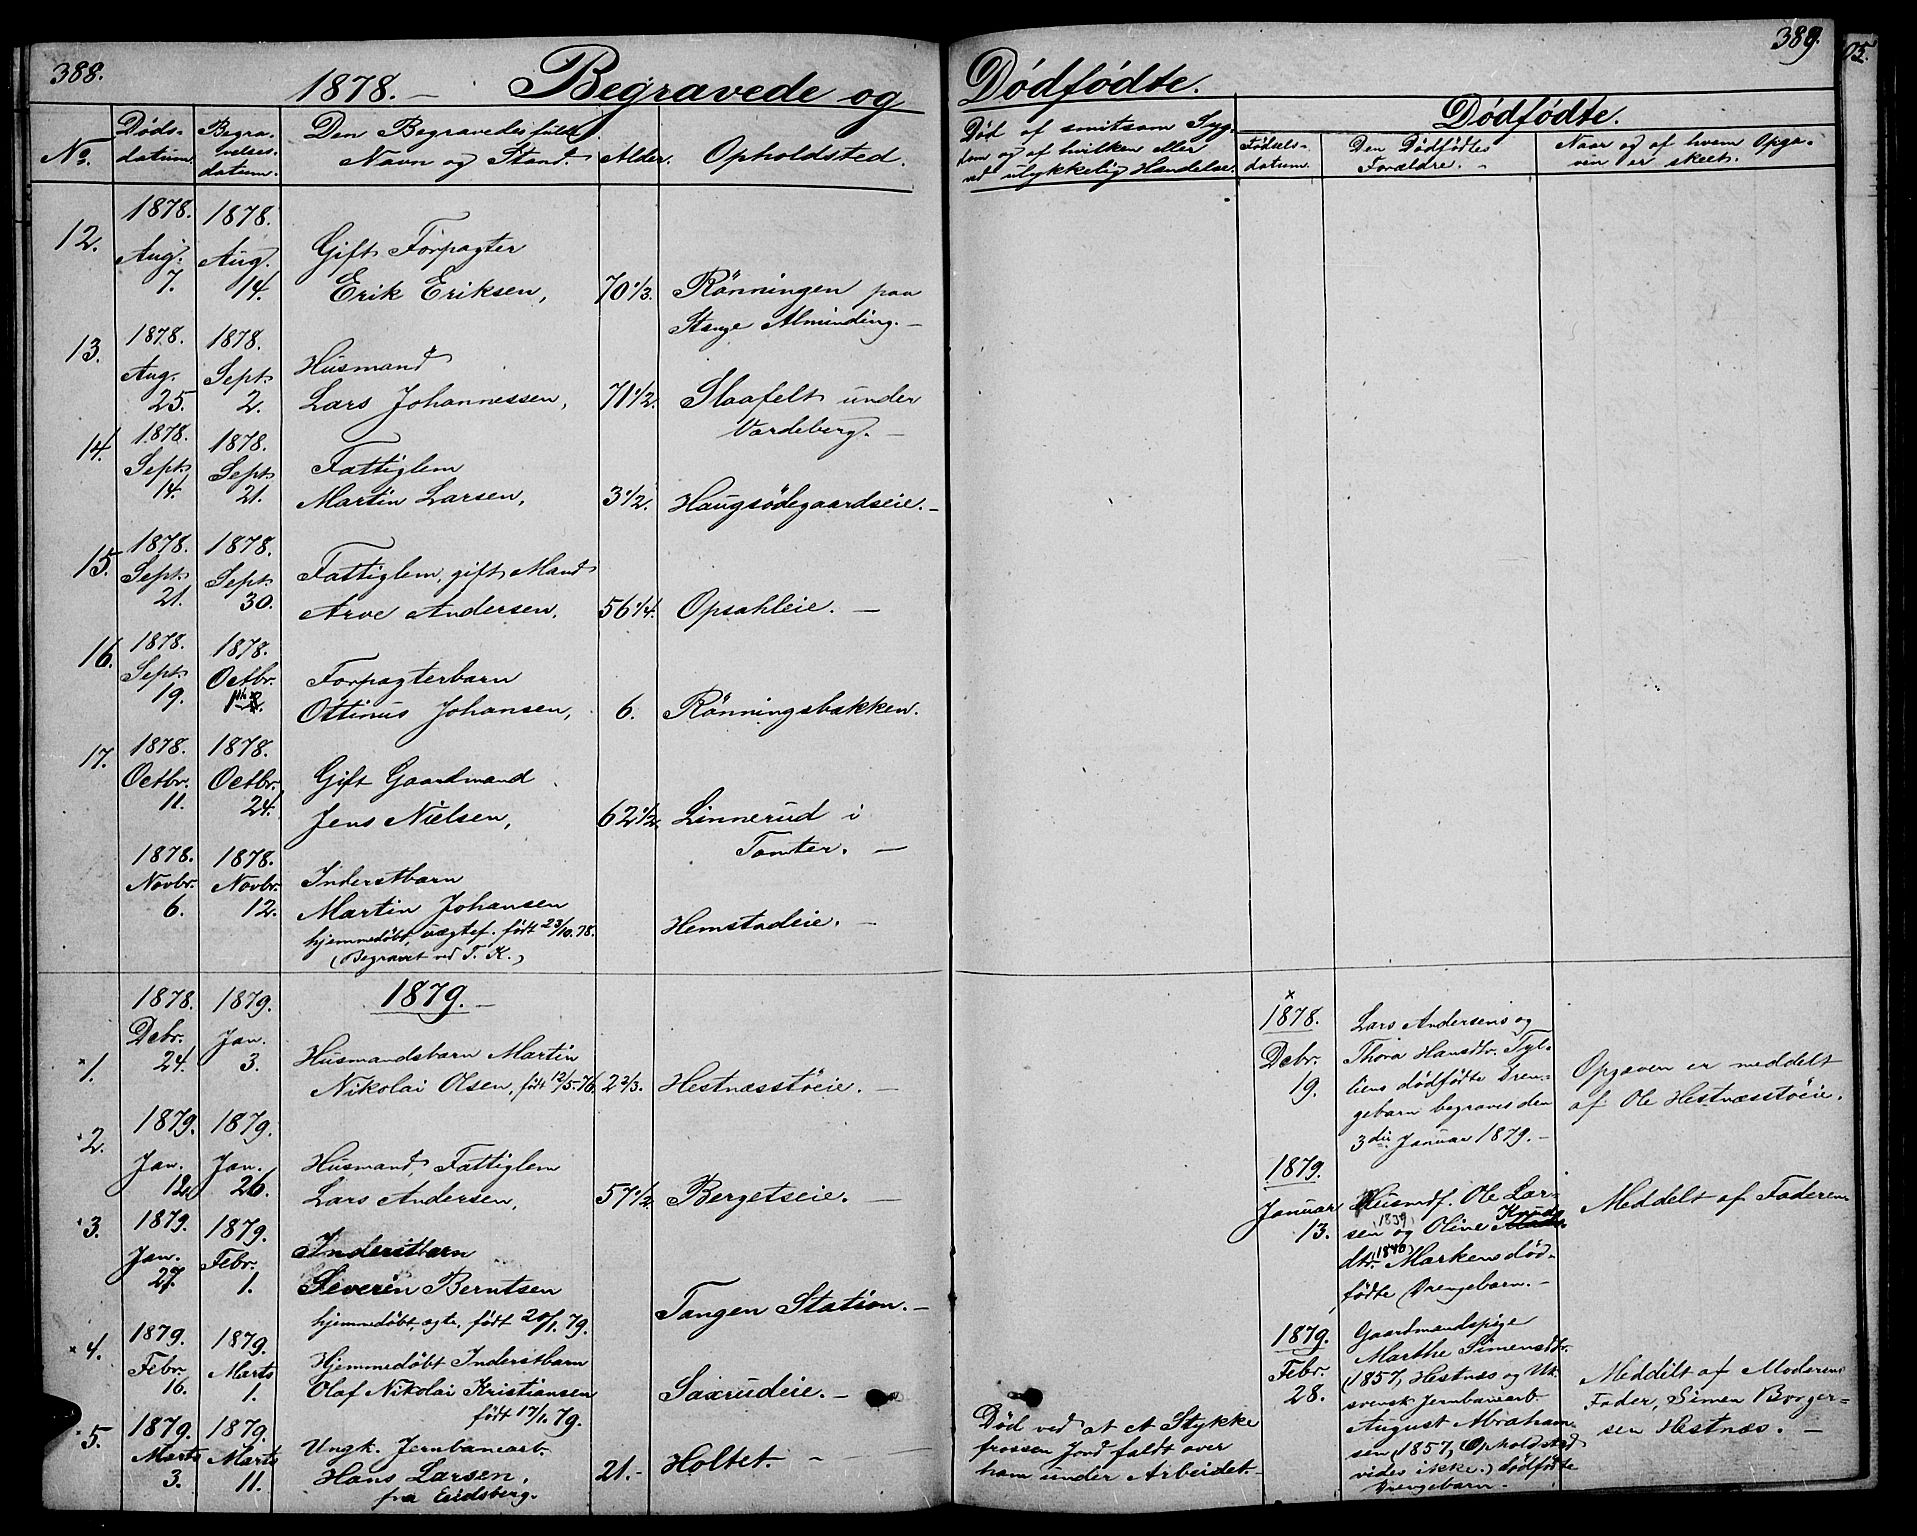 388.
1878. — Begravede og
No.
Døds-
datum.
Begra-
velses-
datum.
Den Begravedes fulde
Navn og Stand.
Alder.
Opholdsted.
12.
1878.
Aug.
7.
1878.
Aug.
14.
Gift Forpagter
Erik Eriksen,
70 1/3.
Rönningen paa
Stange Alminding. —
13.
1878.
Aug.
25.
1878.
Sept.
2.
Husmand
Lars Johannessen,
71 1/2.
Slaafelt under
Vardeberg. —
14.
1878.
Sept.
14.
1878.
Sept.
21.
Fattiglem
Martin Larsen,
3 1/2.
Haugsödegaardseie. —
15.
1878.
Sept.
21.
1878.
Sept.
30.
Fattiglem, gift Mand
Arve Andersen,
56 1/4.
Opsahleie. —
16.
1878.
Sept.
19.
1878.
Octbr.
Forpagterbarn
Ottinus Johansen,
6.
Rönningsbakken.
17.
1878.
Octbr.
11.
1878.
Octbr.
24.
Gift Gaardmand
Jens Nielsen,
62 1/2.
Linnerud i
Tomter. —
1878.
Novbr.
6.
1878.
Novbr.
12.
Inderstbarn
Martin Johansen
hjemmedøbt, uægtef. født 23/10.78.
(Begravet ved T. K.)
Hemstadeie. —
1879. —
1.
1878.
Debr.
24.
1879.
Jan.
3.
Husmandsbarn Martin
Nikolai Olsen, født 12/5.76.
2 2/3.
Hestnæsstøeie. —
2.
1879.
Jan.
12.
1879.
Jan.
26.
Husmand, Fattiglem
Lars Andersen,
57 1/2.
Bergetseie. —
3.
1879.
Jan.
27.
1879.
Febr.
1.
Inderstbarn
Severin Berntsen
hjemmedøbt, ægte, født 20/1.79.
Tangen Station. —
4.
1879.
Febr.
16.
1879.
Marts
1.
Hjemmedøbt Inderstbarn
Olaf Nikolai Kristiansen
født 17/1.79.
Saxrudeie. —
5.
1879.
Marts
3.
1879.
Marts
11.
Ungk. Jernbanearb.
Hans Larsen,
fra Eidsberg.
21. —
Holtet. —
389.
Dødfødte.
Død af smitsom Syg-
dom og af hvilken eller
ved ulykkelig Hændelse.
Dødfødte.
Fødsels-
datum.
Den Dødfødtes
Forældre. —
Naar og af hvem Opga-
ven er skeet.
x
1878.
Debr.
19.
Lars Andersens og
Thora Hansdtr. Tyl-
liens dødfødte Dren-
gebarn begraves den
3die Januar 1879. —
Opgaven er meddelt
af Ole Hestnæsstøeie.
1879.
Januar
13.
Husmdf. Ole Lar-
sen (1839) og Oline Knuds
dtr. (1840) Markens død-
fødte Drengebarn. —
Meddelt af Faderen
1879.
Febr.
28.
Gaardmandspige
Marthe Simensdtr.
(1857) Hestnæs og Uk.
svensk Jernbanearb.
August Abraham-
sen (1857, Opholdsted
vides ikke.) dødfødte
Drengebarn. —
Meddelt af Moderens
Fader, Simen Borger-
sen Hestnæs. —
Død ved at et Stykke
frossen Jord faldt over
ham under Arbeidet. —